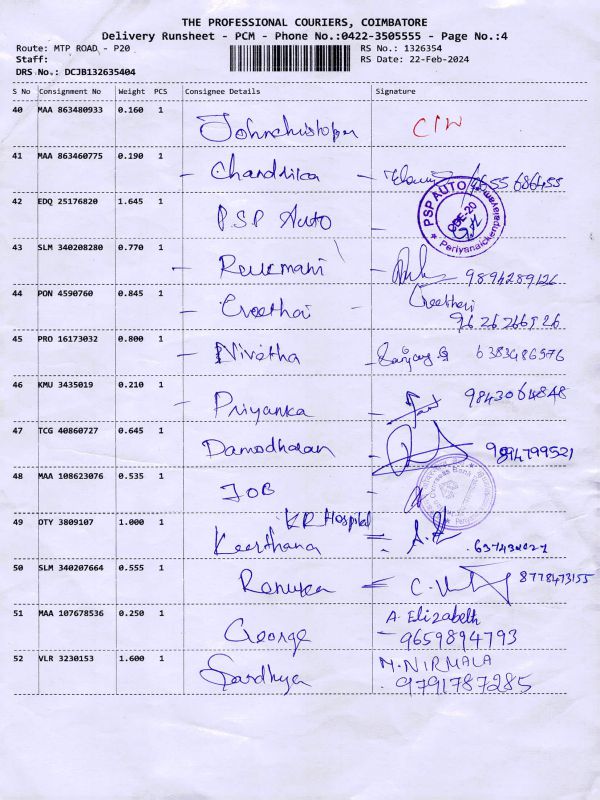 THE PROFESSIONAL COURIERS, COIMBATORE
Delivery Runsheet - PCM - Phone No.:0422-3505555 - Page No.:4
Route: MTP ROAD - P20 RS No.: 1326354
Staff: RS Date: 22-Feb-2024
DRS No.: DCJB132635404
S No Consignment No Weight PCS Consignee Details Signature
40 MAA 863480933 0.160 1 Johnchristoper
41 MAA 863460775 0.190 1 Chandrika 686455
42 EDQ 25176820 1.645 1 P.S.P Auto PSP AUTO CBE-20 Periyanaickenpalayam
43 SLM 340208280 0.770 1 Rukmani 9894289126
44 PON 4590760 0.845 1 Geethai Geethai
9626266926
45 PRO 16173032 0.800 1 Nivetha Sanjay G 6383486576
46 KMU 3435019 0.210 1 Priyanka 9843064848
47 TCG 40860727 0.645 1 Damodharan 9894799521
48 MAA 108623076 0.535 1 IOB Overseas Bank
KR Hospital
49 OTY 3809107 1.000 1 Keerthana
50 SLM 340207664 0.555 1 Renuka 8778473155
51 MAA 107678536 0.250 1 George A. Elizabeth
9659894793
52 VLR 3230153 1.600 1 Sandhya M.NIRMALA
9791787285